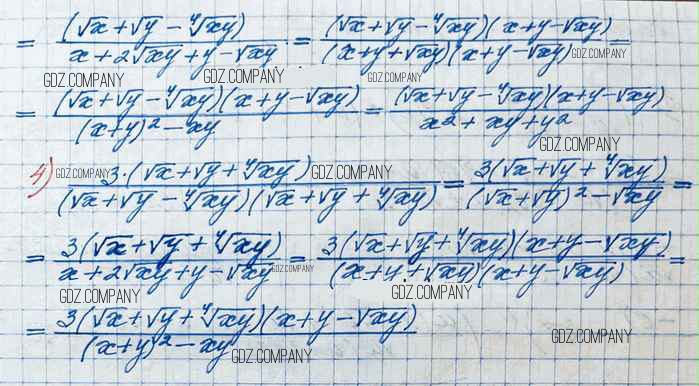 = (√x+√y-⁴√xy) / (x+2√xy+y-√xy) = (√x+√y-⁴√xy)(x+y-√xy) / ((x+y+√xy)(x+y-√xy)) =
GDZ.COMPANY GDZ.COMPANY GDZ.COMPANY GDZ.COMPANY
= (√x+√y-⁴√xy)(x+y-√xy) / ((x+y)²-xy) = (√x+√y-⁴√xy)(x+y-√xy) / (x²+xy+y²)
GDZ.COMPANY
4) 3·(√x+√y+⁴√xy) / ((√x+√y-⁴√xy)(√x+√y+⁴√xy)) = 3(√x+√y+⁴√xy) / ((√x+√y)²-√xy) =
GDZ.COMPANY GDZ.COMPANY
= 3(√x+√y+⁴√xy) / (x+2√xy+y-√xy) = 3(√x+√y+⁴√xy)(x+y-√xy) / ((x+y+√xy)(x+y-√xy)) =
GDZ.COMPANY GDZ.COMPANY GDZ.COMPANY
= 3(√x+√y+⁴√xy)(x+y-√xy) / ((x+y)²-xy)
GDZ.COMPANY GDZ.COMPANY